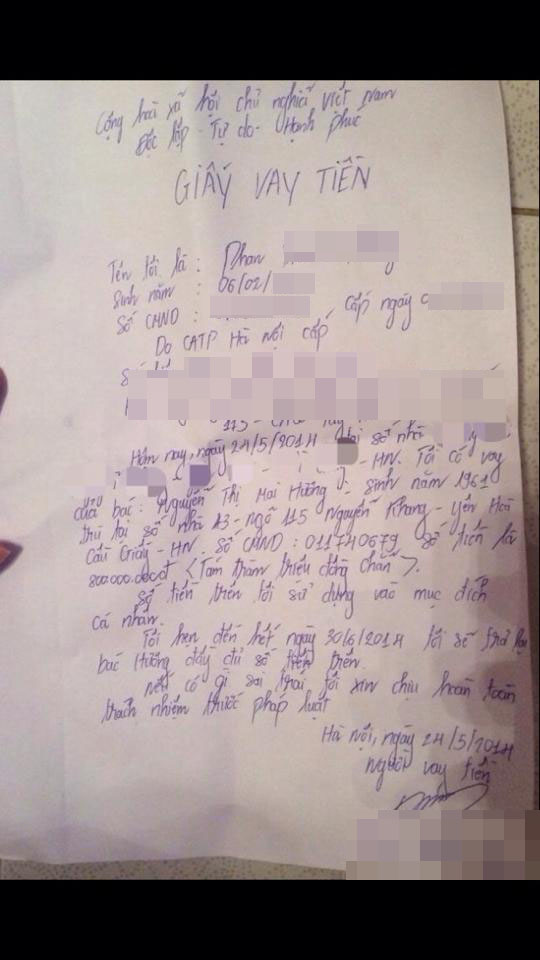 Cộng hoà xã hội chủ nghĩa Việt Nam
Độc lập - Tự do - Hạnh phúc
GIẤY VAY TIỀN
Tên tôi là : Phan
Sinh năm : 06/02/
Số CMND : Cấp ngày
Do CATP Hà Nội cấp
Số
115 -
Hôm nay, ngày 24/5/2014 tại số nhà
- HN. Tôi có vay
của bác : Nguyễn Thị Mai Hương - Sinh năm 1961
trú tại số nhà 13 - ngõ 115 Nguyễn Khang - Yên Hoà
Cầu Giấy - HN. Số CMND : 011740679 số tiền là
800.000.000đ < Tám trăm triệu đồng chẵn >.
Số tiền trên tôi sử dụng vào mục đích
cá nhân.
Tôi hẹn đến hết ngày 30/6/2014 tôi sẽ trả lại
bác Hương đầy đủ số tiền trên.
Nếu có gì sai trái tôi xin chịu hoàn toàn
trách nhiệm trước pháp luật
Hà Nội, ngày 24/5/2014
Người vay tiền